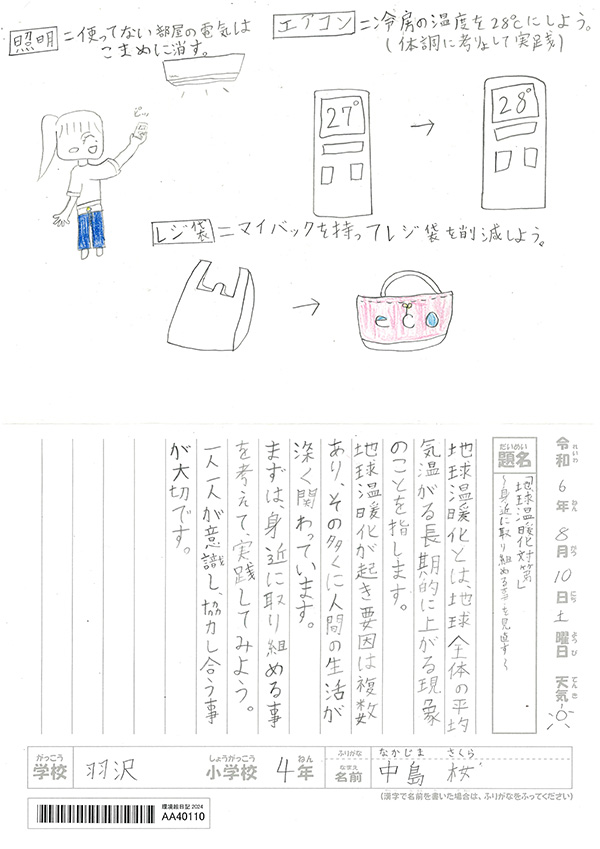 照明＝使ってない部屋の電気は
こまめに消す。
エアコン＝冷房の温度を28℃にしよう。
(体調に考りょして実践)
ピッ
27°
→
28°
レジ袋＝マイバックを持ってレジ袋を削減しよう。
→
eco
令和6年8月10日土曜日 天気
れいわ ねん がつ にち ようび てんき
だいめい
題名
「地球温暖化対策」
～身近に取り組める事を見直す～
地球温暖化とは、地球全体の平均
気温がる長期的に上がる現象
のことを指します。
地球温暖化が起き要因は複数
あり、その多くに人間の生活が
深く関わっています。
まずは、身近に取り組める事
を考えて、実践してみよう。
一人一人が意識し、協力し合う事
が大切です。
がっこう しょうがっこう ねん ふりがな なかじま さくら
学校 羽沢 小学校 4年 なまえ 名前 中島 桜
(漢字で名前を書いた場合は、ふりがなをふってください)
環境絵日記 2024
AA40110